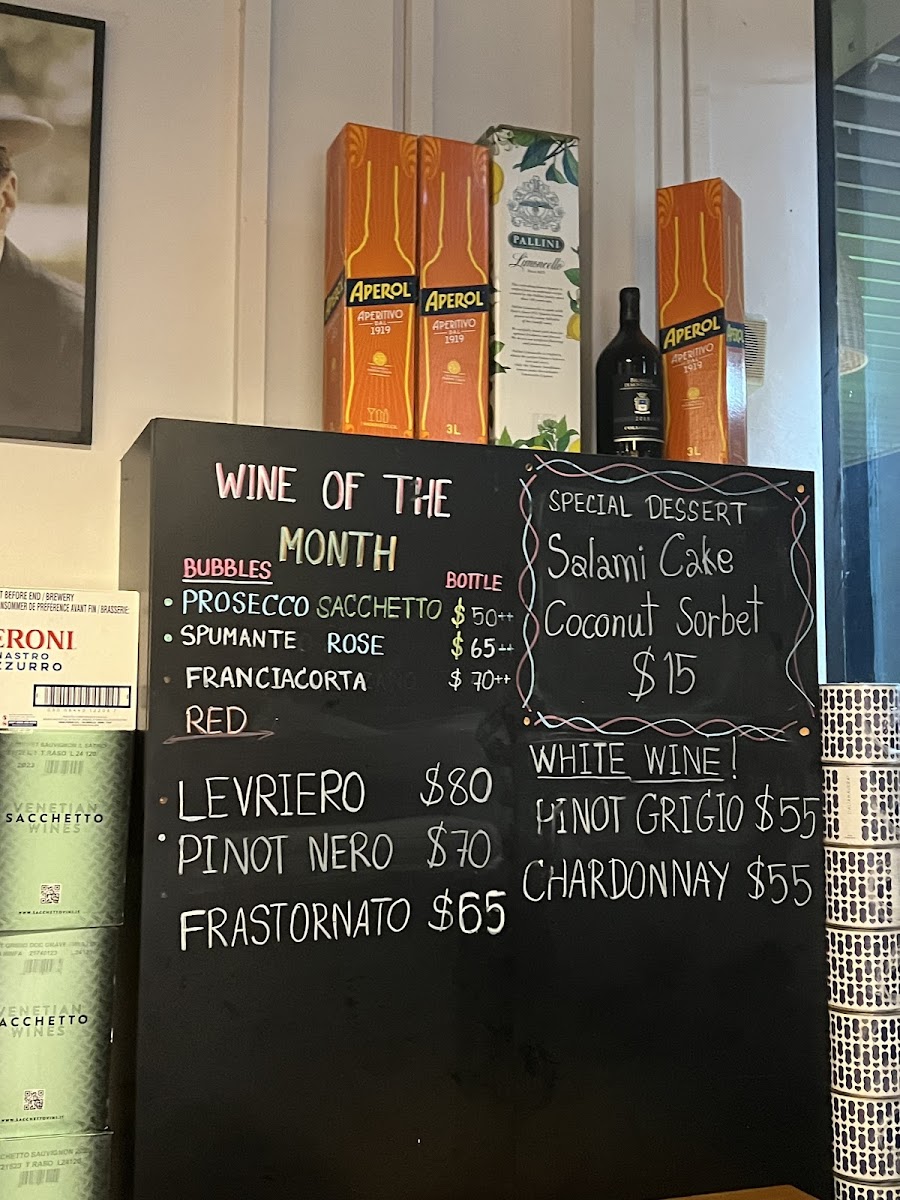 APEROL
APERITIVO
DAL
1919
APEROL
APERITIVO
DAL
1919
3L
PALLINI
Limoncello
APEROL
APERITIVO
DAL
1919
3L
WINE OF THE
MONTH
BUBBLES BOTTLE
• PROSECCO SACCHETTO $ 50++
• SPUMANTE ROSE $ 65++
FRANCIACORTA $ 70++
RED
LEVRIERO $80
• PINOT NERO $70
FRASTORNATO $65
SPECIAL DESSERT
Salami Cake
Coconut Sorbet
$15
WHITE WINE!
PINOT GRIGIO $55
CHARDONNAY $55
T BEFORE END / BREWERY
NSOMMER DE PREFERENCE AVANT FIN / BRASSERIE:
ERONI
NASTRO
ZZURRO
VENETIAN
SACCHETTO
WINES
WWW.SACCHETTOVINI.IT
VENETIAN
ACCHETTO
WINES
WWW.SACCHETTOVINI.IT